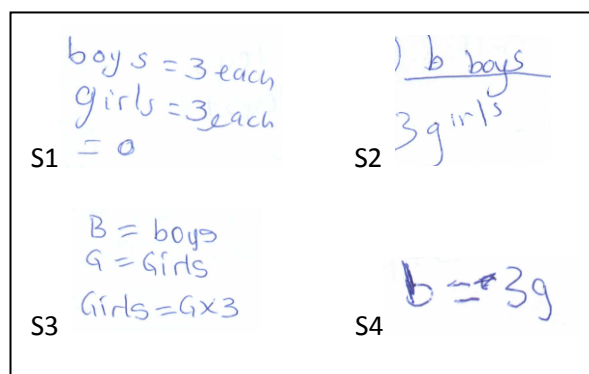 boys = 3 each
girls = 3 each
= 0
S1
) b boys
3 girls
S2
B = boys
G = Girls
Girls = G x 3
S3
b = 3g
S4